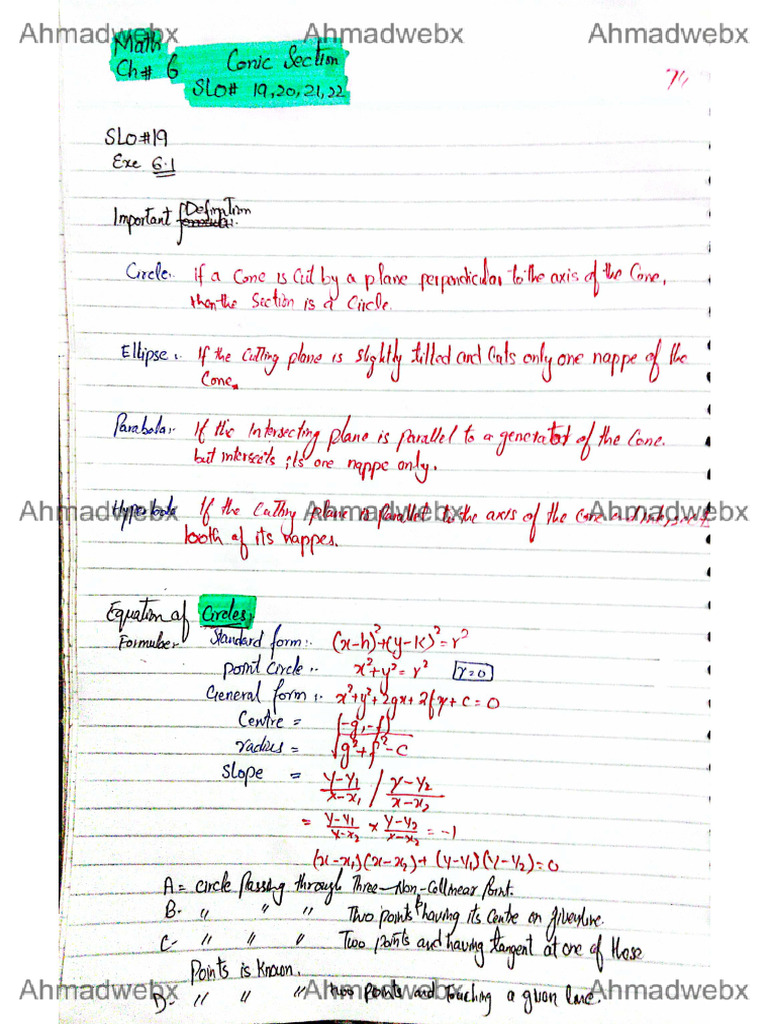 Ahmadwebx Ahmadwebx Ahmadwebx
Math
Ch# 6 Conic Section
SLO# 19,20,21,22
SLO#19
Exe 6.1
Important Definition
Circle:- if a Cone is Cut by a plane perpendicular to the axis of the Cone,
then the Section is a Circle.
Ellipse:- If the Cutting plane is slightly tilted and Cuts only one nappe of the
Cone.
Parabola:- If the Intersecting plane is parallel to a generator of the Cone.
but intersects its one nappe only.
Ahmadwebx Ahmadwebx Ahmadwebx
Hyperbola If the Cutting plane is Parallel to the axis of the Cone and intersects
booth of its nappes.
Equation of Circles:
Formulae:- Standard form:- (x-h)²+(y-k)²=r²
Point Circle:- x²+y²=r² r=0
General form:- x²+y²+2gx+2fy+c=0
Centre = (-g,-f)
radius = √g²+f²-c
Slope = y-y₁/x-x₁ / y-y₂/x-x₂
= y-y₁/x-x₂ × y-y₂/x-x₂ = -1
(x-x₁)(x-x₂)+(y-y₁)(y-y₂)=0
A= circle Passing through Three-Non-Collinear Point.
B- " " " Two points & having its Centre on given line.
C- " " " Two points and having tangent at one of these
Points is known.
D- " " " two points and Touching a given line.
Ahmadwebx Ahmadwebx Ahmadwebx